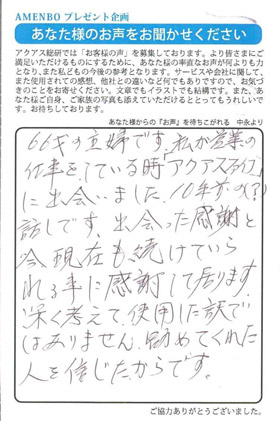 AMENBO プレゼント企画
あなた様のお声をお聞かせください
アクアス総研では「お客様の声」を募集しております。より皆さまにご
満足いただけるものにするために、あなた様の率直なお声が何よりも力
となり、また私どもの今後の参考となります。サービスや会社に関し
て、また使用されての感想、他社との違いなど何でもありですので、お気づ
きのことをお寄せください。文章でもイラストでも結構です。また、あな
たが様ご自身、ご家族の写真も添えていただけるととってもうれしいで
す。お待ちしております。
あなた様からの『お声』を待ちこがれる 中永より
66才の主婦です。私が営業の
仕事をしている時「アクアスライブ」
に出会いました。10年ずの
話しです。出会った感謝と
今現在も続けていら
れる事に感謝して居ります。
深く考えて使用した訳で
はありません。勧めてくれた
人を信じたからです。
ご協力ありがとうございました。